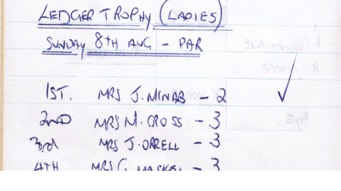 LEDGER TROPHY (LADIES)
SUNDAY 8TH AUG - PAR
1ST. MRS J. MINAS - 2
2ND MRS M. CROSS - 3
3rd MRS J. ORRELL - 3
4TH MRS C. MASKEL - 3